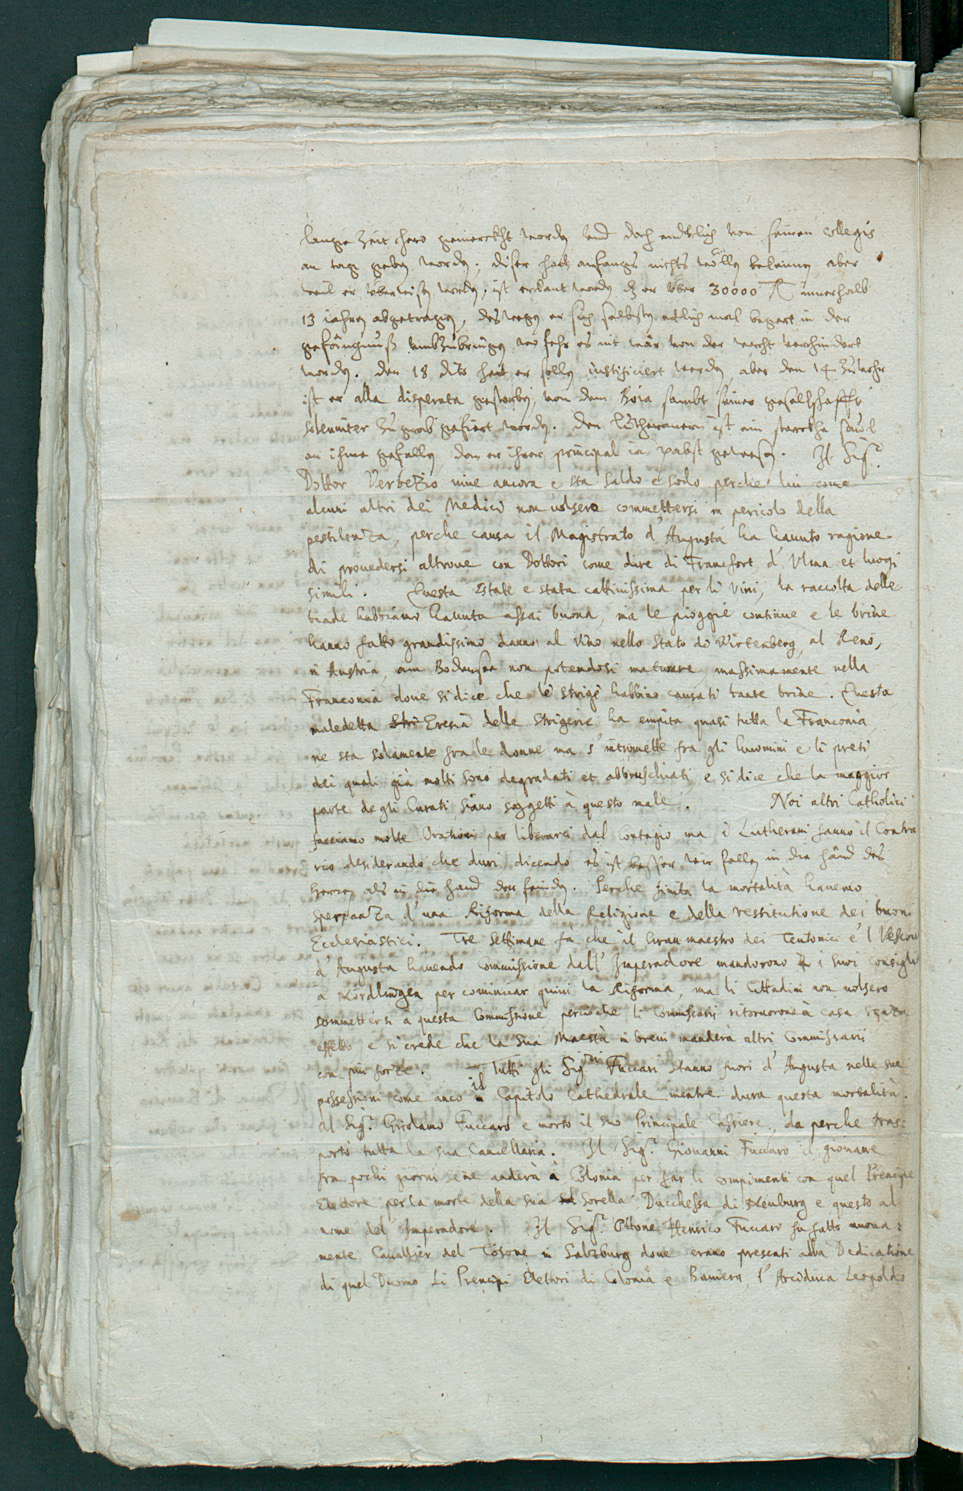 lange Zeit hero gemerckht worden und doch endtlich von seinen collegis
an tag geben worden, diser hatt anfangs nichts wöllen bekennen aber
weil er überwisen worden, ist erkant worden dz er über 30000 R innerhalb
13 iahren abgetragen, deswegen er sich selbsten etlich mal begert in der
gefängnuß umbzubringen, wo fehr es nit wär von der wacht verhindert
worden. Den 18 dito hatt er sollen iustificiert werden, aber den 17 zuvor
ist er alla disperata gestorben, von dem Boia sambt seiner gesellschafft
solenniter zu grab gefiert worden. Den Lutheranern ist ein starckhe saul
an ihme gefallen, dan er ihrer principal in pabst gewesen. Il Sigr.
Dottor Verbezio vive ancora e sta saldo e sodo perche lui come
alcuni altri dei Medici non volsero commettersi in pericolo della
pestilenza, perche causa il Magistrato d'Augusta ha havuto ragione
di provedersi altrove con Dottori come dire di Francfort d'Ulma et luogi
simili. Questa Estate e stata cattivissima per li vini, la raccolta delle
biade habbiamo havuta assai buona, ma le pioggie continue e le brine
hanno fatto grandissimo danno al vino nello Stato di Wirtenberg, al Reno,
in Austria, am Bodensee non potendosi maturare, massimamente nella
Franconia dove si dice che le strige habbino causati tante brine. Questa
maledetta Stri Eresia delle Strigerie ha empita quasi tutta la Franconia
ne sta solamente fra le donne ma s'intromette fra gli huomini e li preti
dei quali già molti sono degradati et abbruschiati e si dice che la maggior
parte degli Curati siano soggetti à questo male. Noi altri Catholici
facciamo molte Orationi per liberarci dal contagio ma i Lutherani fanno il Contra
rio desiderando che duri dicendo es ist besser wir fallen in die händ des
herren als in die hand der feinden. Perche finita la mortalità haverno
speranza d'una Riforma della Religione e della restitutione dei buoni
Ecclesiastici. Tre settimane fa che il Gran maestro dei Teutonici e'l Vescovo
d'Augusta havendo Commissione dall'Imperadore mandorono i suoi Consigli
a Nördlingen per cominciar quivi la Riforma, ma li Cittadini non volsero
sommettersi à questa Commissione perioche li Commissarii ritornorono à casa senza
effetto e si crede che la Sua Maestà in brevi mandera altri Commissarii
con piu forze. Tutti gli Sigri Fuccari stanno fuori d'Augusta nelle sue
possessioni come anco il Capitolo Cathedrale mentre dura questa mortalità.
Al Sigr. Girolamo Fuccaro e morto il suo Principale Cassiere, da perche tras:
portò tutta la sua Cancellaria. Il Sigr. Giovanni Fuccaro il giovane
fra pochi giorni se ne anderà à Colonia per far li compimenti con quel Prencipe
Elettore per la morte della sua Sorella Ducchessa di Neuburg e questo al
nome del Imperadore. Il Sigr. Ottone Henrico Fuccari fu fatto nuova:
mente Cavallier del Tosone in Salzburg dove erano presenti alla Dedicatione
di quel Duomo Li Prencipi Elettori di Colonia e Baviera, l'Arciduca Leopoldo